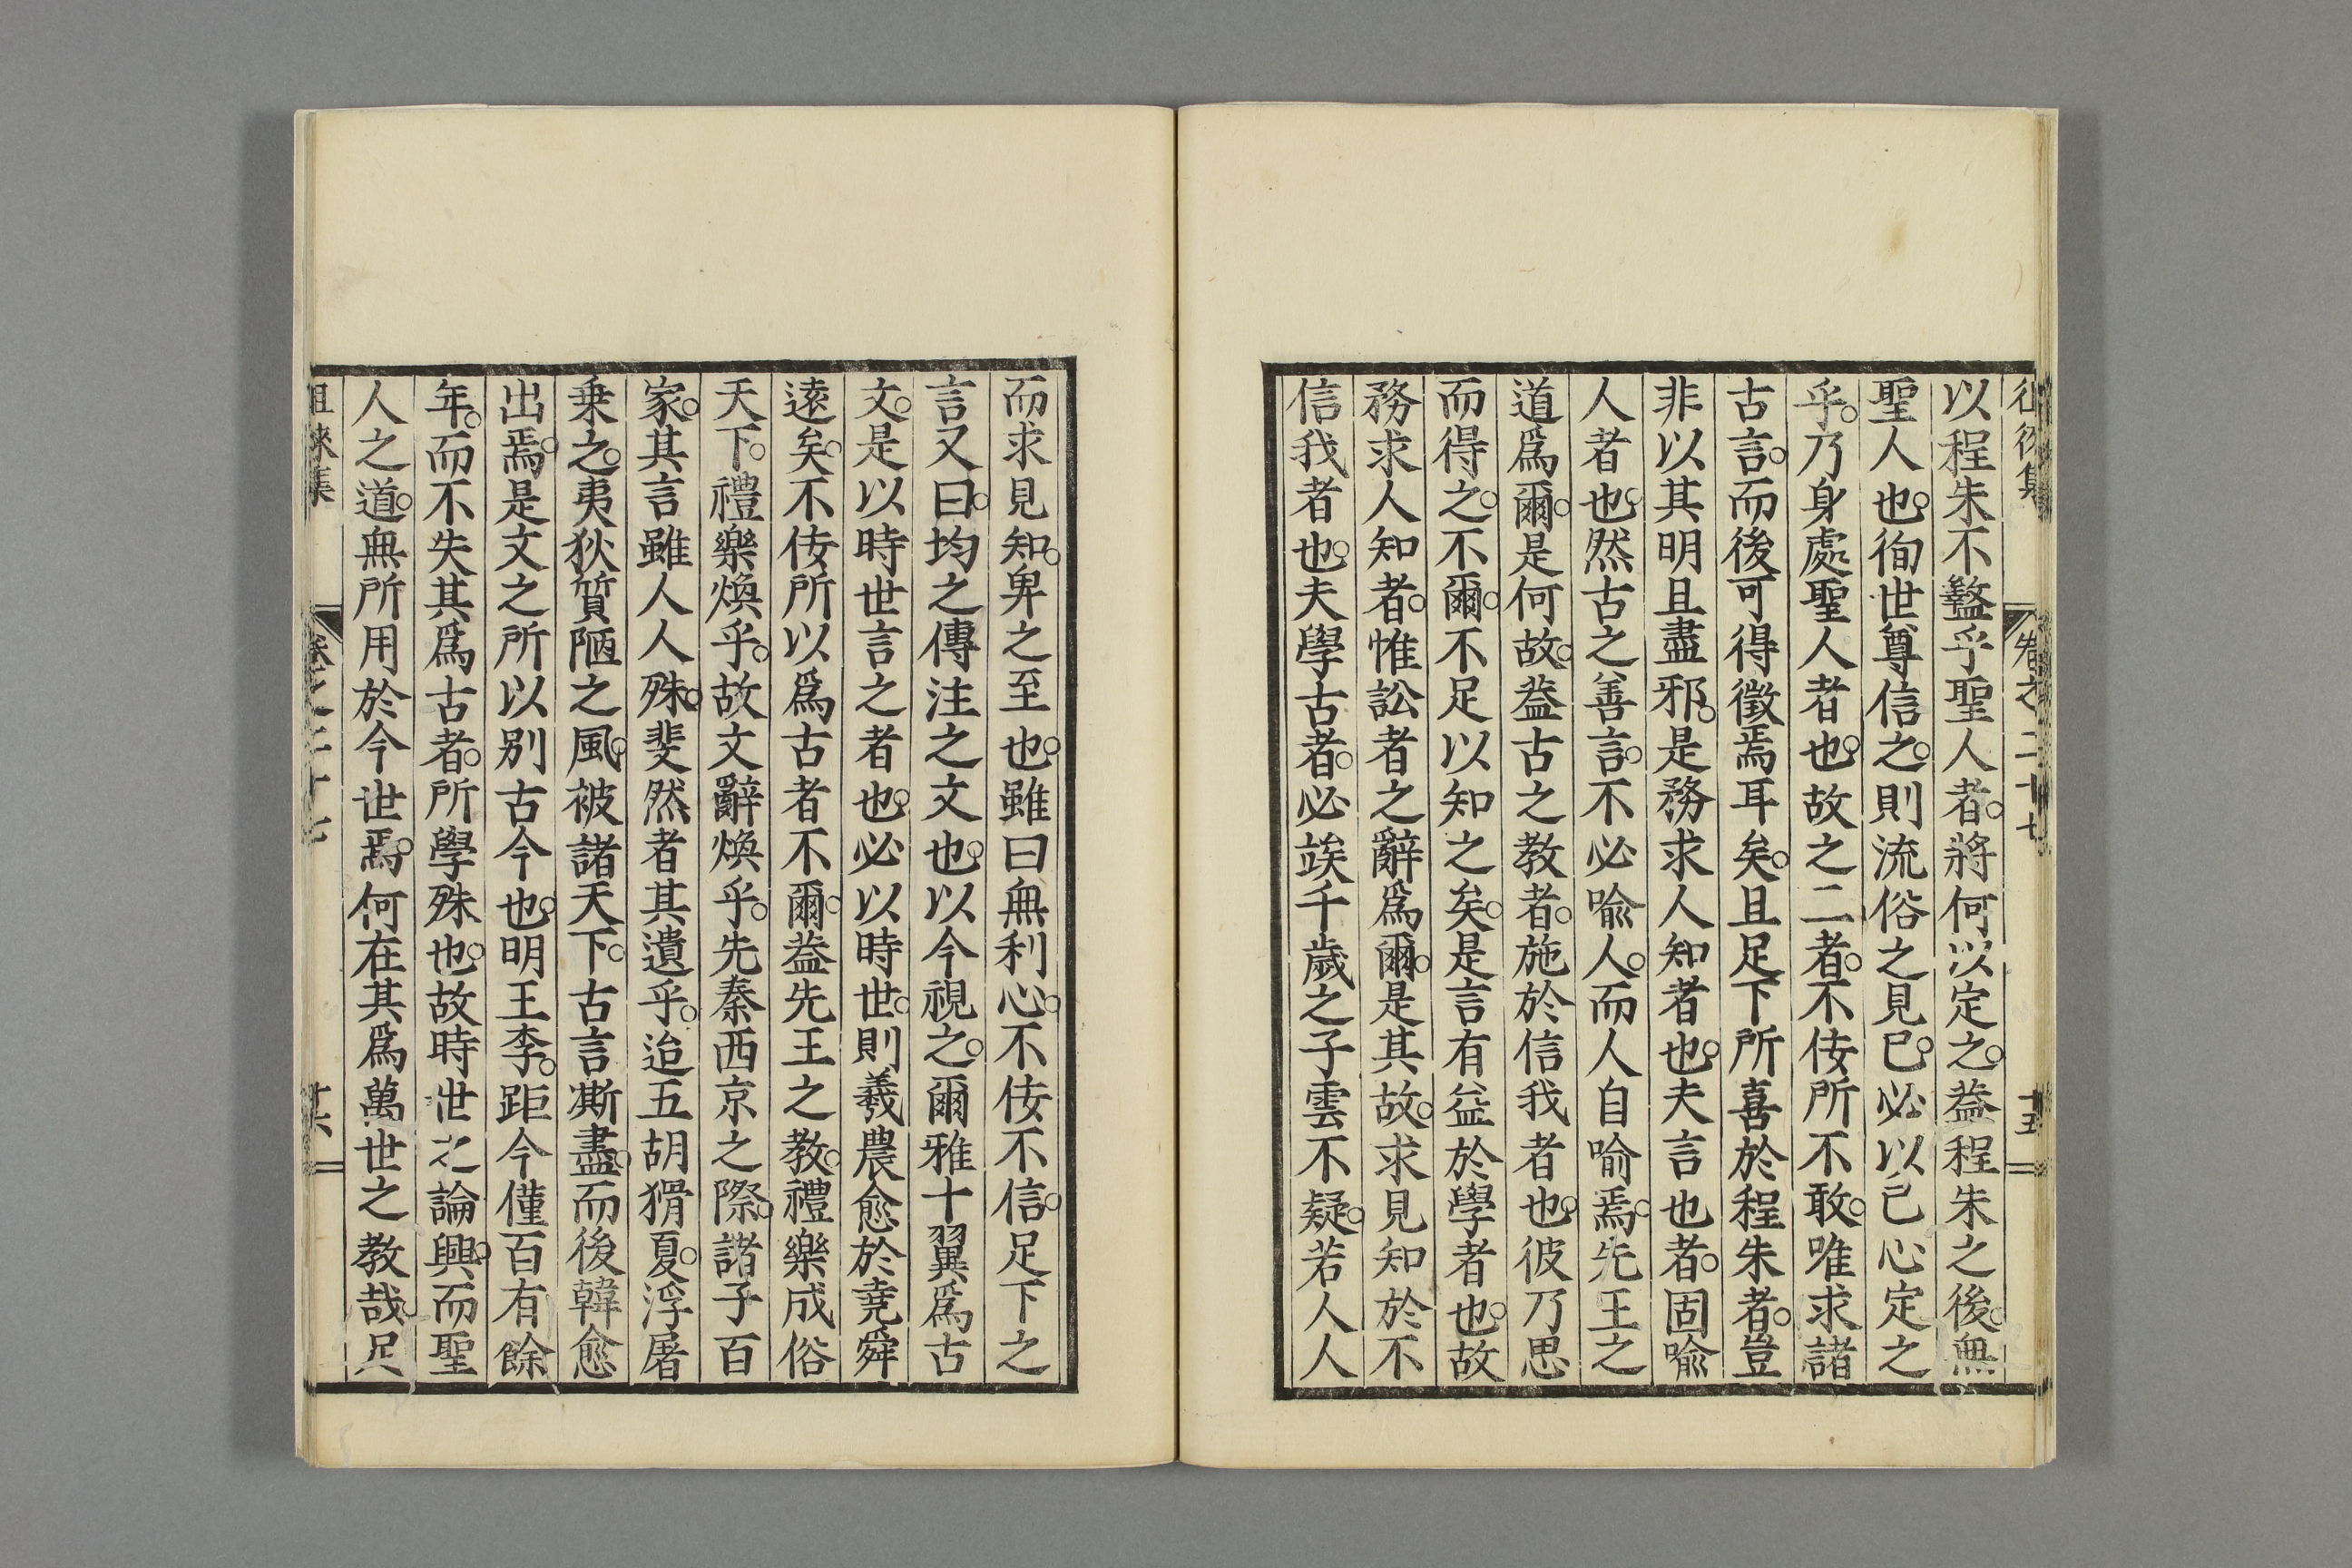 以程朱不盭乎聖人者。將何以定之。葢程朱之後。無
聖人也。徇世尊信之。則流俗之見已。必以己心定之
乎。乃身處聖人者也。故之二者。不佞所不敢。唯求諸
古言。而後可得徵焉耳矣。且足下所喜於程朱者。豈
非以其明且盡邪。是務求人知者也。夫言也者。固喩
人者也。然古之善言。不必喩人。而人自喩焉。先王之
道爲爾。是何故。葢古之教者。施於信我者也。彼乃思
而得之。不爾。不足以知之矣。是言有益於學者也。故
務求人知者。惟訟者之辭爲爾。是其故。求見知於不
信我者也。夫學古者。必竢千歲之子雲不疑。若人人
而求見知。卑之至也。雖曰無利心。不佞不信。足下之
言又曰。均之傳注之文也。以今視之。爾雅十翼爲古
文。是以時世言之者也。必以時世。則羲農愈於堯舜
遠矣。不佞所以爲古者不爾。葢先王之教。禮樂成俗
天下。禮樂煥乎。故文辭煥乎。先秦西京之際。諸子百
家。其言雖人人殊。斐然者其遺乎。迨五胡猾夏。浮屠
乗之。夷狄質陋之風。被諸天下。古言澌盡。而後韓愈
出焉。是文之所以别古今也。明王李。距今僅百有餘
年。而不失其爲古者。所學殊也。故時世之論興。而聖
人之道。無所用於今世焉。何在其爲萬世之教哉。足
徂徠集 卷之二十七 十六